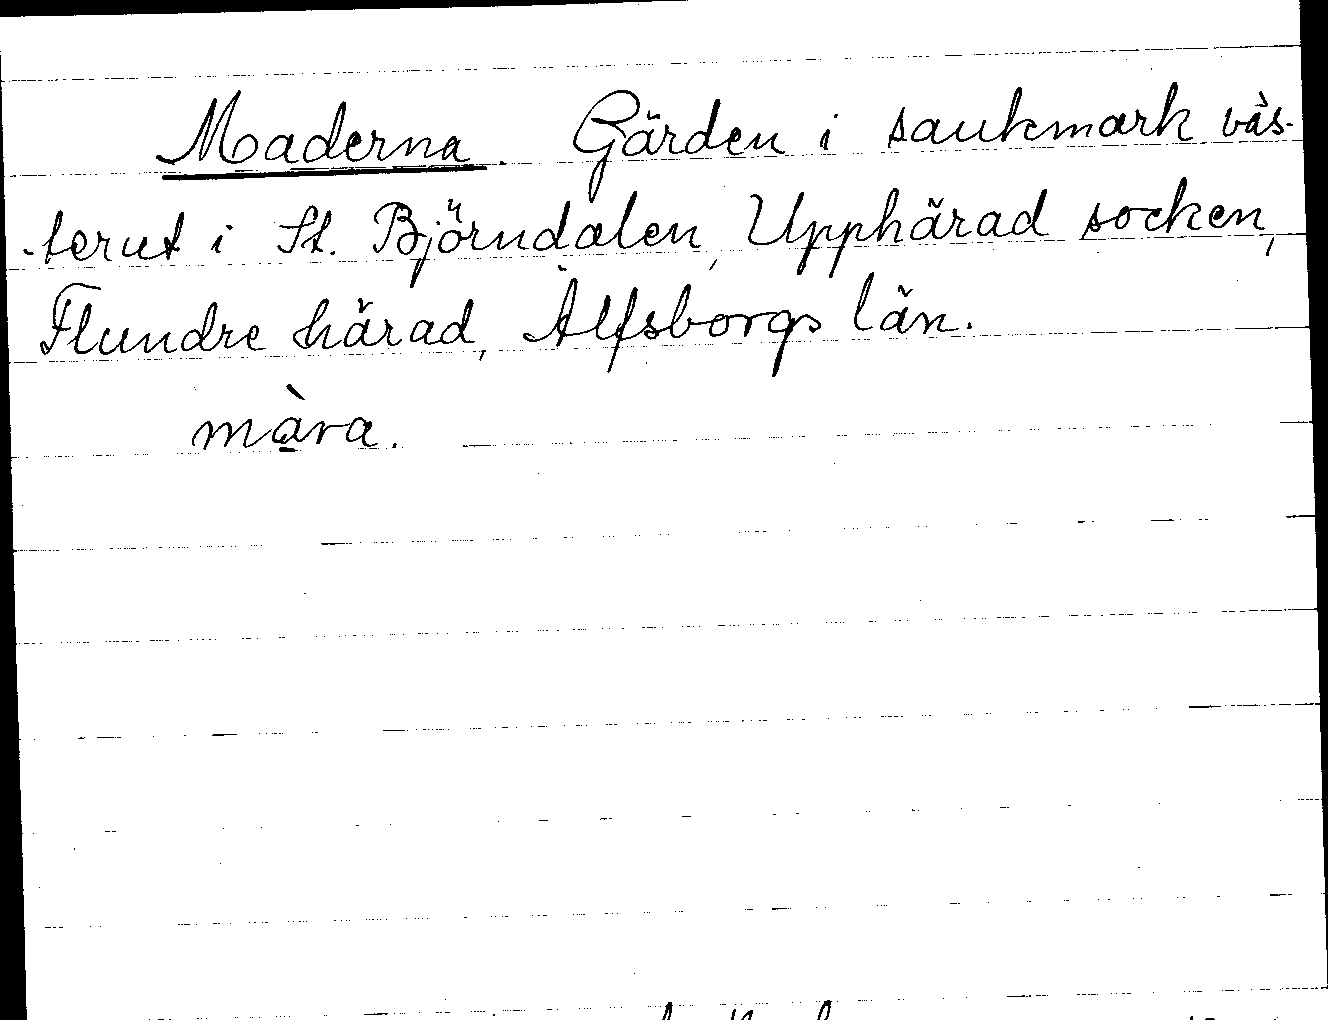 Maderna. Gärden i sankmark väs-
-terut i St. Björndalen, Upphärad socken,
Flundre härad, Älfsborgs län.
màra.